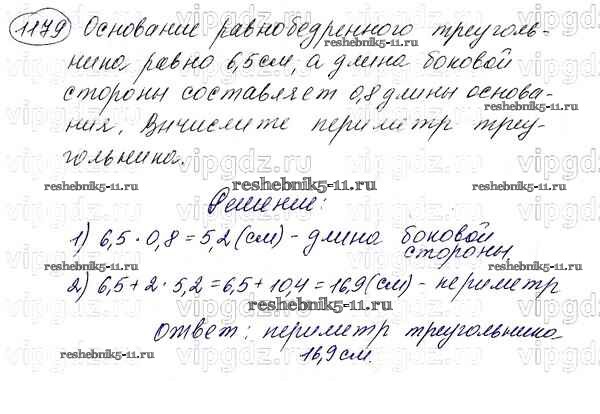 1179 Основание равнобедренного треуголь-
ника равно 6,5см, а длина боковой
стороны составляет 0,8 длины основа-
ния. Вычислите периметр треу-
гольника.
reshebnik5-11.ru vipgdz.ru reshebnik5-11.ru
reshebnik5-11.ru
Решение:
1) 6,5 · 0,8 = 5,2 (см) - длина боковой
стороны
2) 6,5 + 2 · 5,2 = 6,5 + 10,4 = 16,9 (см) - периметр
reshebnik5-11.ru
Ответ: периметр треугольника
16,9 см.
reshebnik5-11.ru vipgdz.ru reshebnik5-11.ru